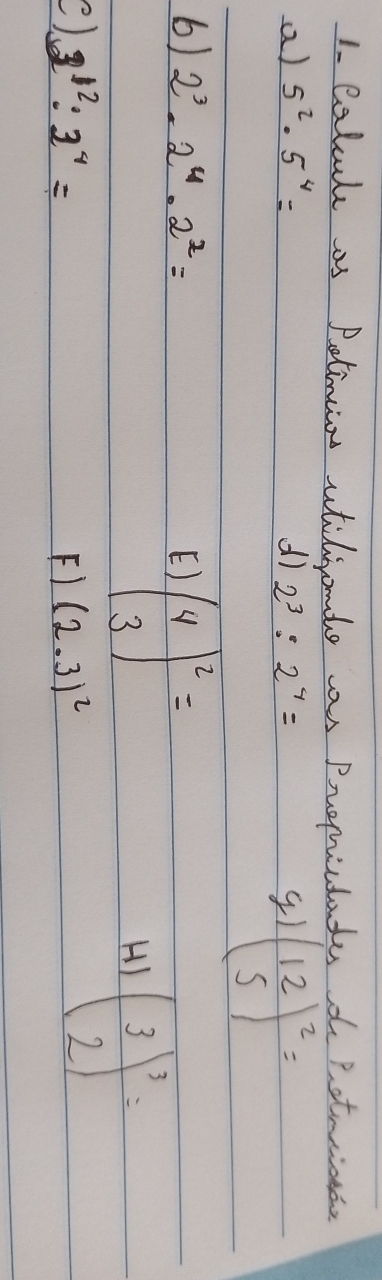 1- Calcule as Potências utilizando as Propriedades de Potenciação.
a) 5² · 5⁴ =
d) 2³ : 2⁴ =
g) (12/5)² =
b) 2³ · 2⁴ · 2² =
E) (4/3)² =
H) (3/2)³ =
C) : 3⁴ =
F) (2 · 3)²